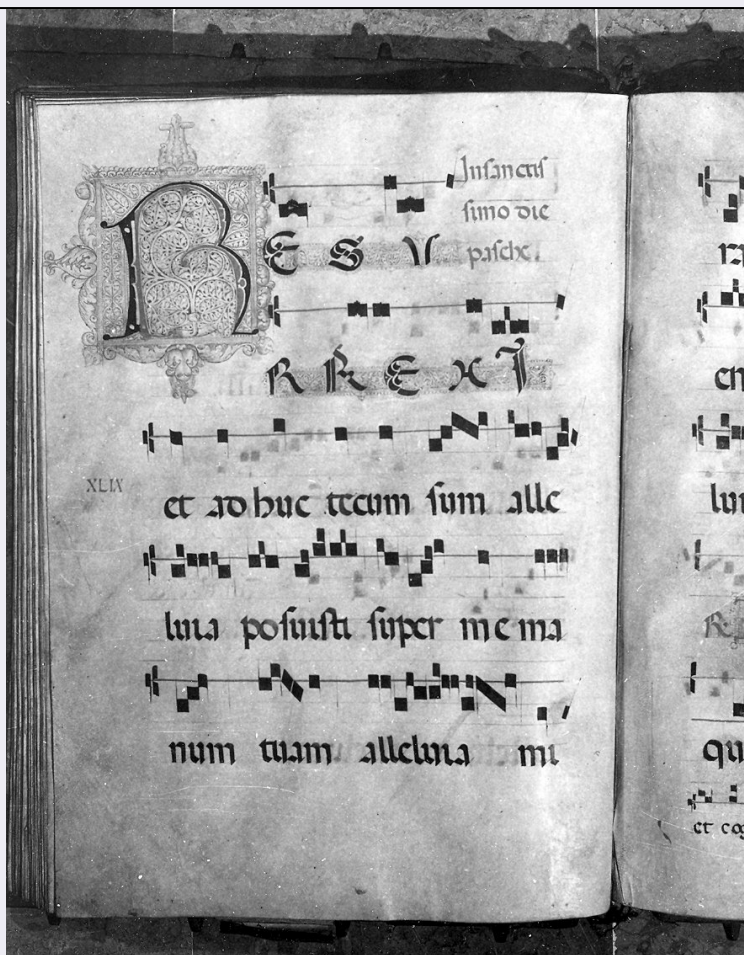 In sanctis
simo die
pasche.
RESU
RREXI
et adhuc tecum sum alle
XLIX
luia posuisti super me ma
num tuam alleluia mi
en
lui
qu
et cog